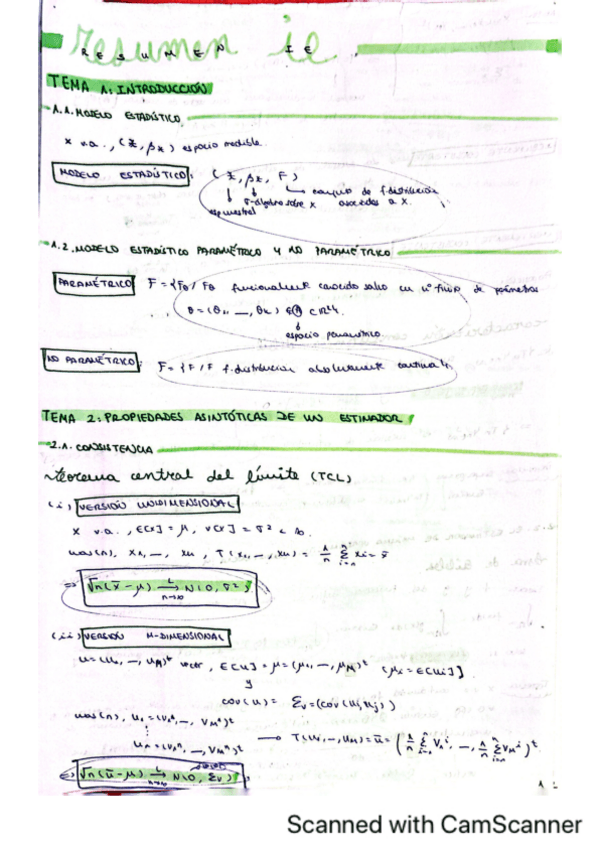 Resumen ie
RESUMEN IE.
TEMA 1: INTRODUCCIÓN
1.1. MODELO ESTADÍSTICO
X v.a., (X, βx) espacio medible.
MODELO ESTADÍSTICO: (X, βx, F)
conjunto de f.distribución
σ-álgebra sobre X asociadas a X.
esp. muestral
1.2. MODELO ESTADÍSTICO PARAMÉTRICO Y NO PARAMÉTRICO
PARAMÉTRICO F = {Fθ / Fθ funcionalmente conocida salvo un nº finito de parámetros
θ = (θ1, —, θk) ∈ Θ ⊂ ℝᵏ}.
espacio paramétrico
NO PARAMÉTRICO: F = {F / F f.distribución absolutamente continua}.
TEMA 2: PROPIEDADES ASINTÓTICAS DE UN ESTIMADOR
2.1. CONSISTENCIA
teorema central del límite (TCL)
(i) VERSIÓN UNIDIMENSIONAL
X v.a., E[X] = μ, V[X] = σ² < ∞.
mas(n), X1, —, Xn, T(X1, —, Xn) = 1/n Σ Xi = x̄
⇒ √n(x̄ − μ) →ᴸ n→∞ N(0, σ²)
(ii) VERSIÓN M-DIMENSIONAL
u = (u1, —, uM)ᵗ vector, E[u] = μ = (μ1, —, μM)ᵗ (μi = E[ui]).
y
cov(u) = Σv = (cov(ui, uj))
mas(n), u1 = (V1¹, —, VM¹)ᵗ
un = (V1ⁿ, —, VMⁿ)ᵗ → T(u1, —, un) = ū = (1/n Σ V1ⁱ, —, 1/n Σ VMⁱ)ᵗ
⇒ √n(ū − μ) →ᴸ n→∞ N(0, Σv)
1
Scanned with CamScanner